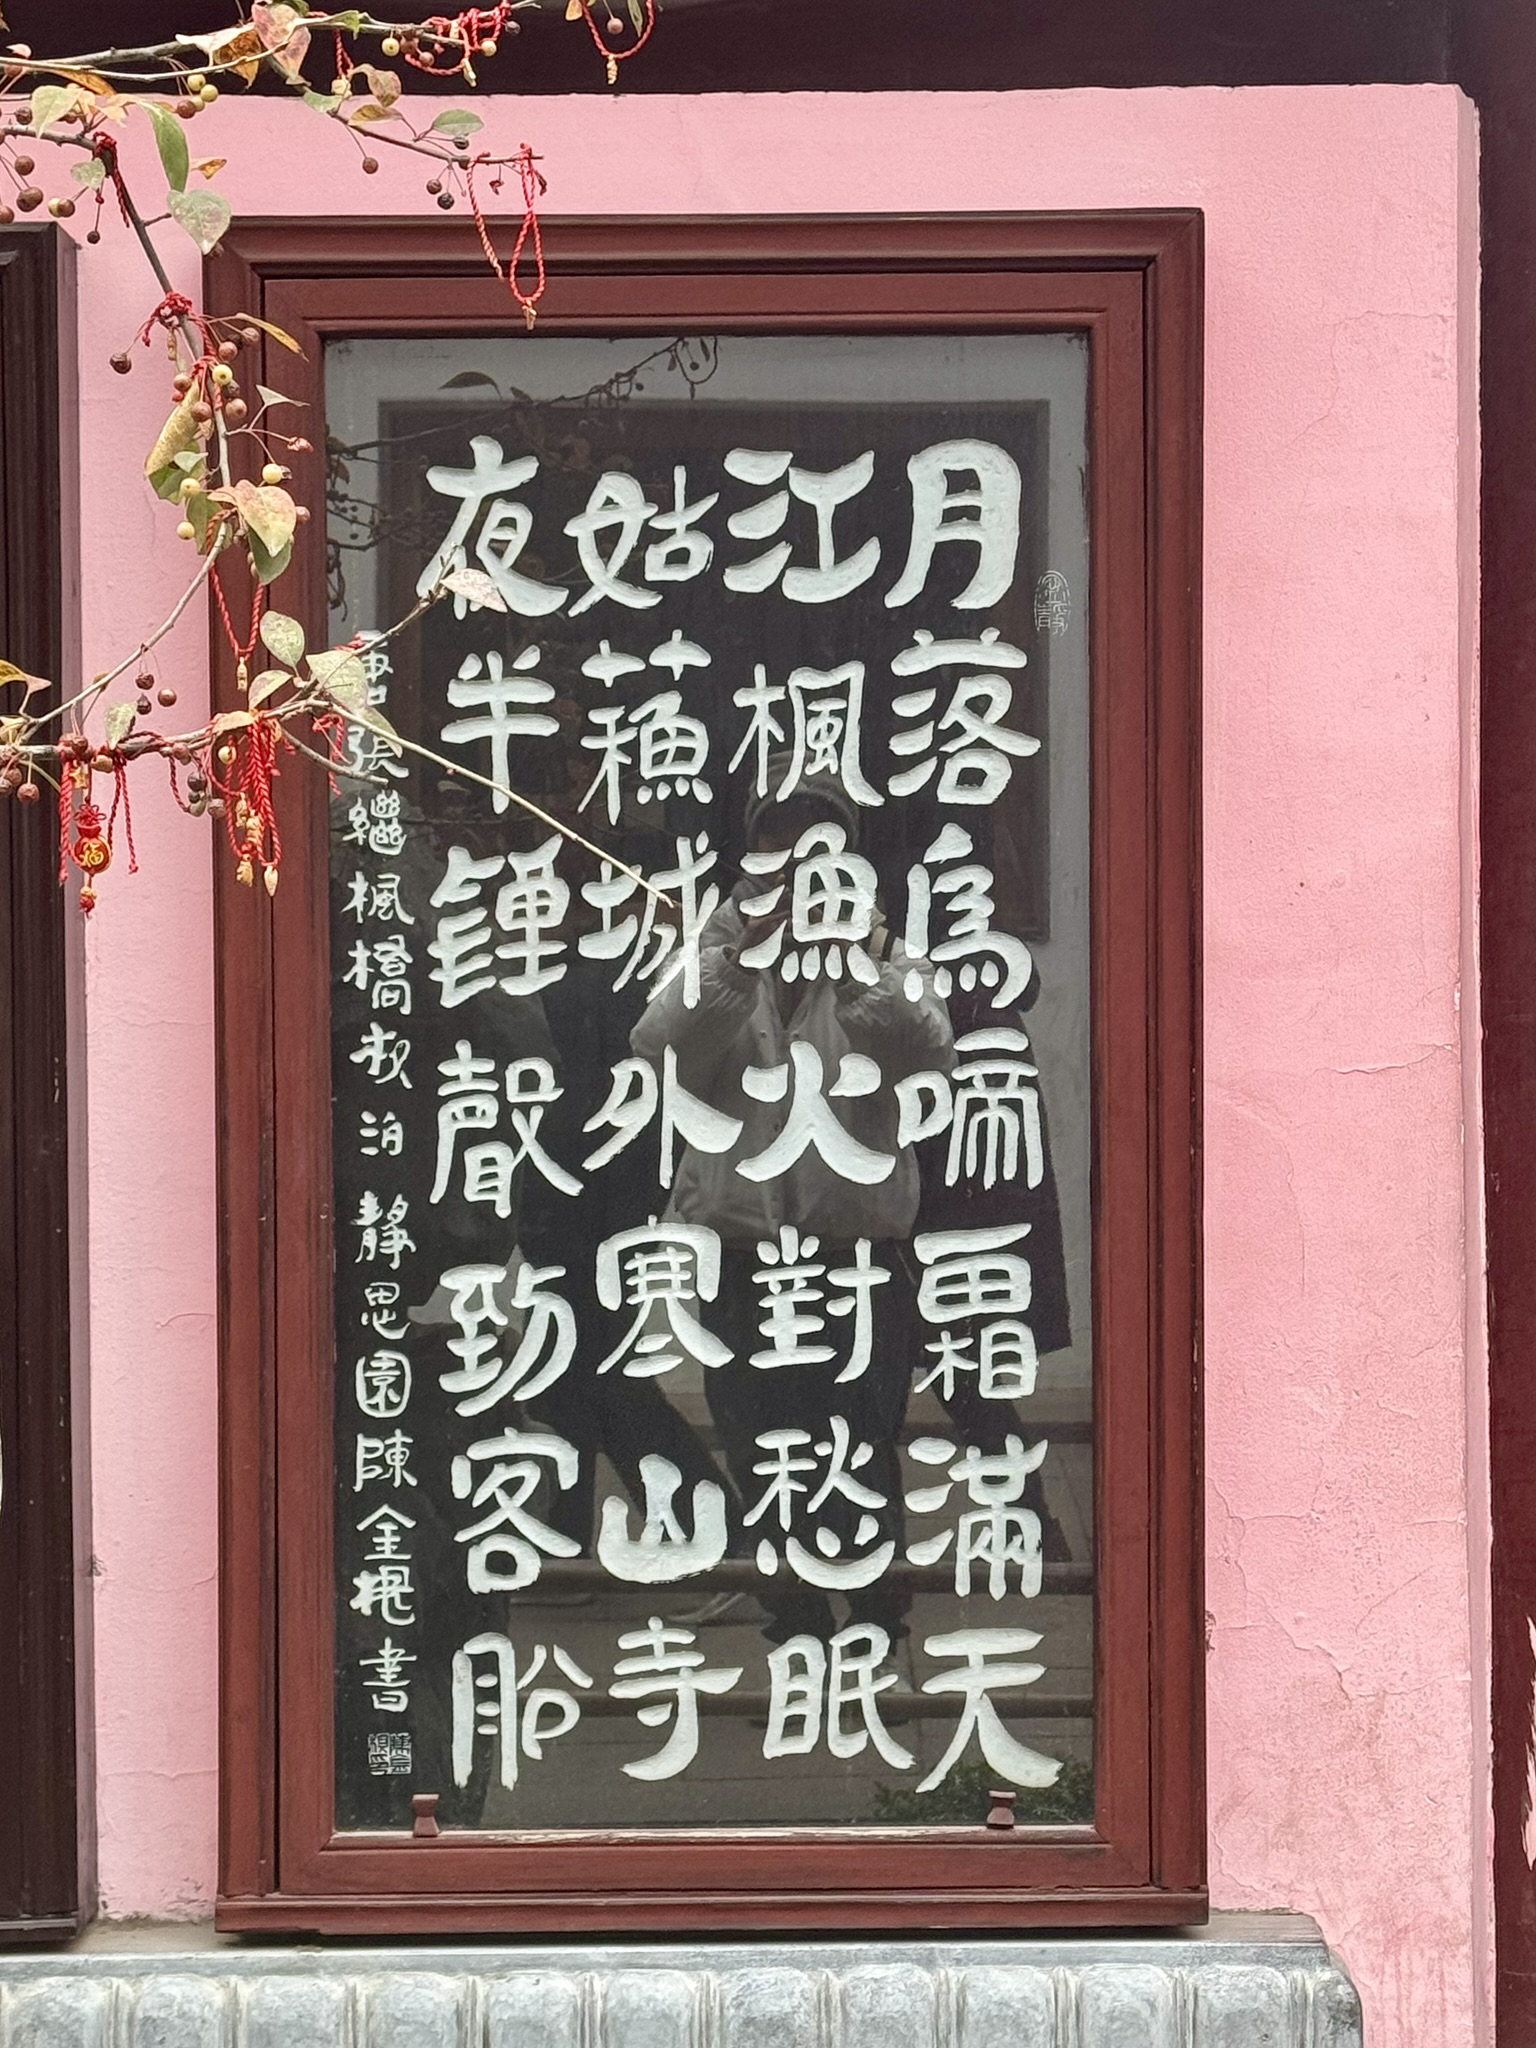 月落烏啼霜滿天
江楓漁火對愁眠
姑蘓城外寒山寺
夜半鍾聲到客船
唐張繼楓橋夜泊 靜思園陳金根書
福